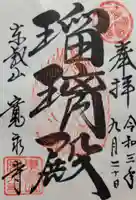 奉拝
令和三年
九月二十日
瑠璃殿
東叡山
寛永寺